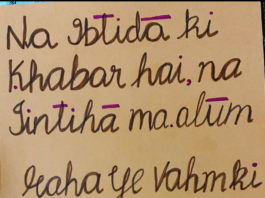 Na Ibtidā ki
Khabar hai, na
Iintihā ma.alūm
rahā ye vahm ki